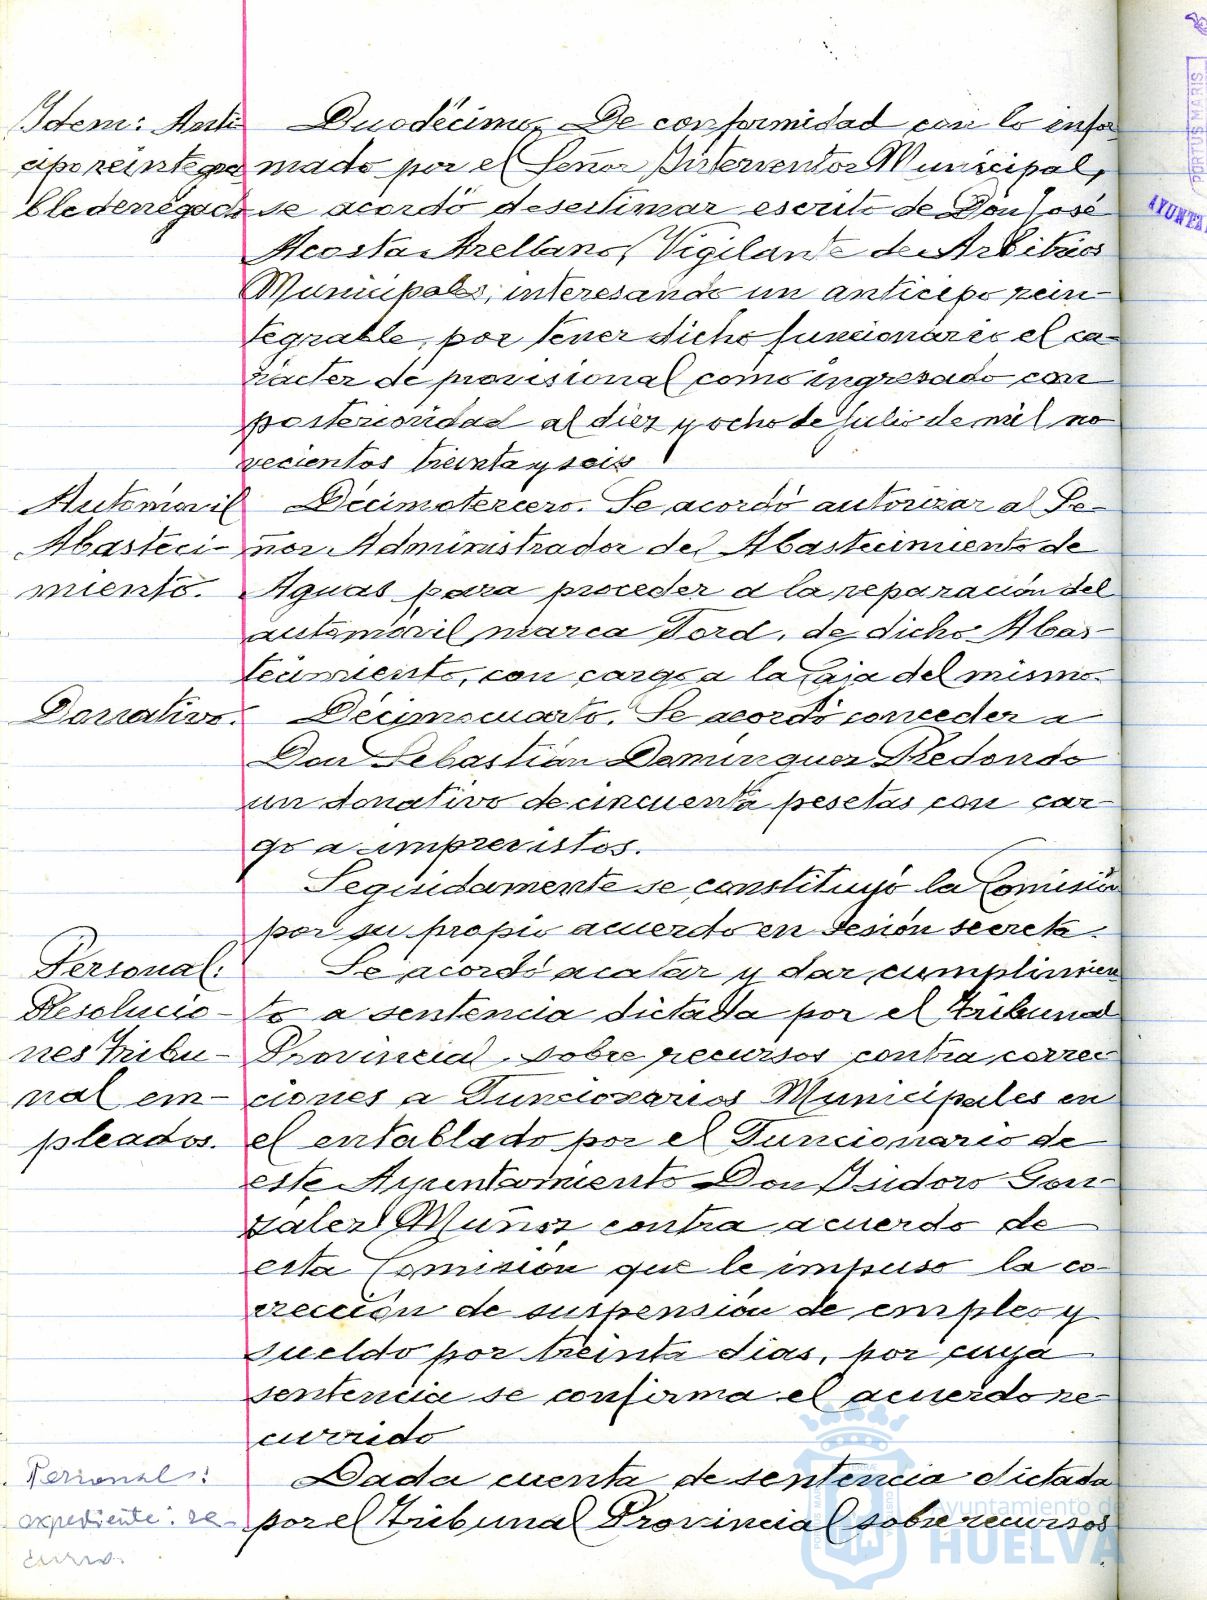 Idem: Anti-
cipo reintegra
ble denegado
Duodécimo. De conformidad con lo infor
mado por el Señor Interventor Municipal,
se acordó desestimar escrito de Don José
Acosta Arellano, Vigilante de Arbitrios
Municipales, interesando un anticipo rein-
tegrable, por tener dicho funcionario el ca-
rácter de provisional como ingresado con
posterioridad al diez y ocho de Julio de mil no
vecientos treinta y seis
Automóvil
Abasteci-
miento.
Décimotercero. Se acordó autorizar al Se-
ñor Administrador del Abastecimiento de
Aguas para proceder a la reparación del
automóvil marca Ford, de dicho Abas-
tecimiento, con cargo a la Caja del mismo.
Donativo.
Décimocuarto. Se acordó conceder a
Don Sebastián Domínguez Redondo
un donativo de cincuenta pesetas con car-
go a imprevistos.
Seguidamente se constituyó la Comisión
por su propio acuerdo en sesión secreta.
Personal:
Resolucio-
nes Tribu-
nal em-
pleados.
Se acordó acatar y dar cumplimien
to a sentencia dictada por el Tribunal
Provincial sobre recursos contra correc
ciones a Funcionarios Municipales en
el entablado por el Funcionario de
este Ayuntamiento Don Isidoro Gon-
zález Muñoz contra acuerdo de
esta Comisión que le impuso la co-
rrección de suspensión de empleo y
sueldo por treinta días, por cuya
sentencia se confirma el acuerdo re-
currido
Personal:
expediente: re-
curso.
Dada cuenta de sentencia dictada
por el Tribunal Provincial sobre recursos
PORTUS MARIS
AYUNTA
Ayuntamiento de
HUELVA